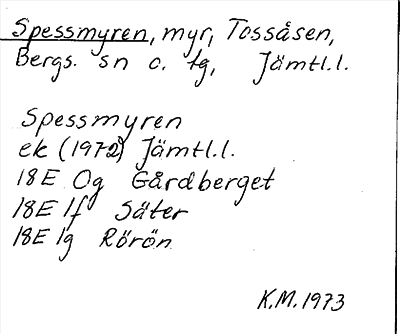 Spessmyren, myr, Tossåsen,
Bergs. sn o. tg, Jämtl.l.
Spessmyren
ek (1972) Jämtl.l.
18E 0g Gårdberget
18E 1f Säter
18E 1g Rörön
K.M. 1973